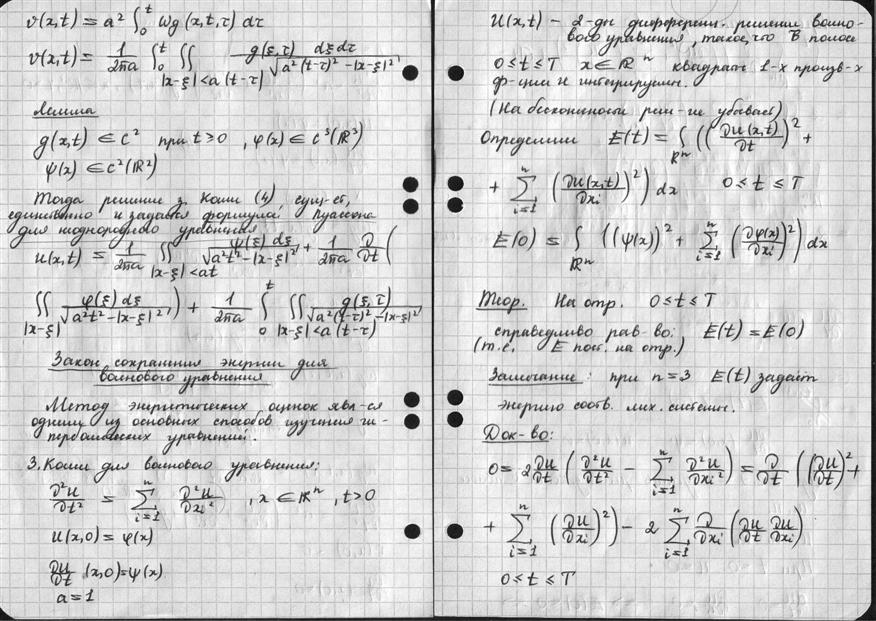 v(x,t) = a² ∫₀ᵗ Wg (x,t,τ) dτ
v(x,t) = 1/(2πa) ∫₀ᵗ ∬_{|x-ξ|<a(t-τ)} g(ξ,τ) dξdτ / √(a²(t-τ)² - |x-ξ|²)
Лемма
g(x,t) ∈ C² при t ≥ 0 , φ(x) ∈ C³(ℝ³)
ψ(x) ∈ C²(ℝ²)
Тогда решение з. Коши (4) сущ-ет,
единственно и задается формулой Пуассона
для неоднородного уравнения
u(x,t) = 1/(2πa) ∬_{|x-ξ|<at} ψ(ξ) dξ / √(a²t² - |x-ξ|²) + 1/(2πa) ∂/∂t (
∬_{|x-ξ|} φ(ξ) dξ / √(a²t² - |x-ξ|²) ) + 1/(2πa) ∫₀ᵗ ∬_{|x-ξ|<a(t-τ)} g(ξ,τ) / √(a²(t-τ)² - |x-ξ|²)
Закон сохранения энергии для
волнового уравнения
Метод энергетических оценок явл-ся
одним из основных способов изучения ги-
перболических уравнений.
З. Коши для волнового уравнения:
∂²u/∂t² = Σ_{i=1}^{n} ∂²u/∂xi² , x ∈ ℝⁿ , t>0
u(x,0) = φ(x)
∂u/∂t (x,0) = ψ(x)
a = 1
u(x,t) - 2-ды дифференц. решение волно-
вого уравнения, такое, что в полосе
0 ≤ t ≤ T x ∈ ℝⁿ квадрат 1-х произв-х
ф-ции и интегрируем.
(На бесконечности реш-ие убывает)
Определим E(t) = ∫_{ℝⁿ} ((∂u(x,t)/∂t)² +
+ Σ_{i=1}^{n} (∂u(x,t)/∂xi)²) dx 0 ≤ t ≤ T
E(0) = ∫_{ℝⁿ} ((ψ(x))² + Σ_{i=1}^{n} (∂φ(x)/∂xi)²) dx
Теор. На отр. 0 ≤ t ≤ T
справедливо рав-во: E(t) = E(0)
(т.е. E пост. на отр.)
Замечание: при n=3 E(t) задаёт
энергию соотв. мех. системы.
Док-во:
0 = 2 ∂u/∂t (∂²u/∂t² - Σ_{i=1}^{n} ∂²u/∂xi²) = ∂/∂t ((∂u/∂t)² +
+ Σ_{i=1}^{n} (∂u/∂xi)²) - 2 Σ_{i=1}^{n} ∂/∂xi (∂u/∂t ∂u/∂xi)
0 ≤ t ≤ T